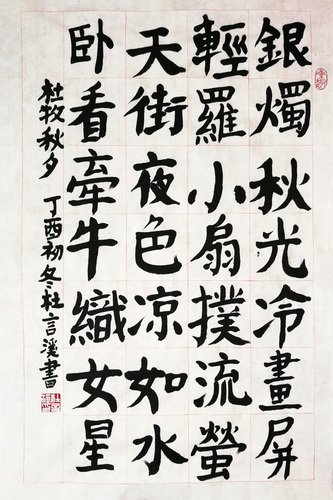 銀燭秋光冷畫屏
輕羅小扇撲流螢
天街夜色凉如水
卧看牽牛織女星
杜牧秋夕 丁酉初冬杜言溪書